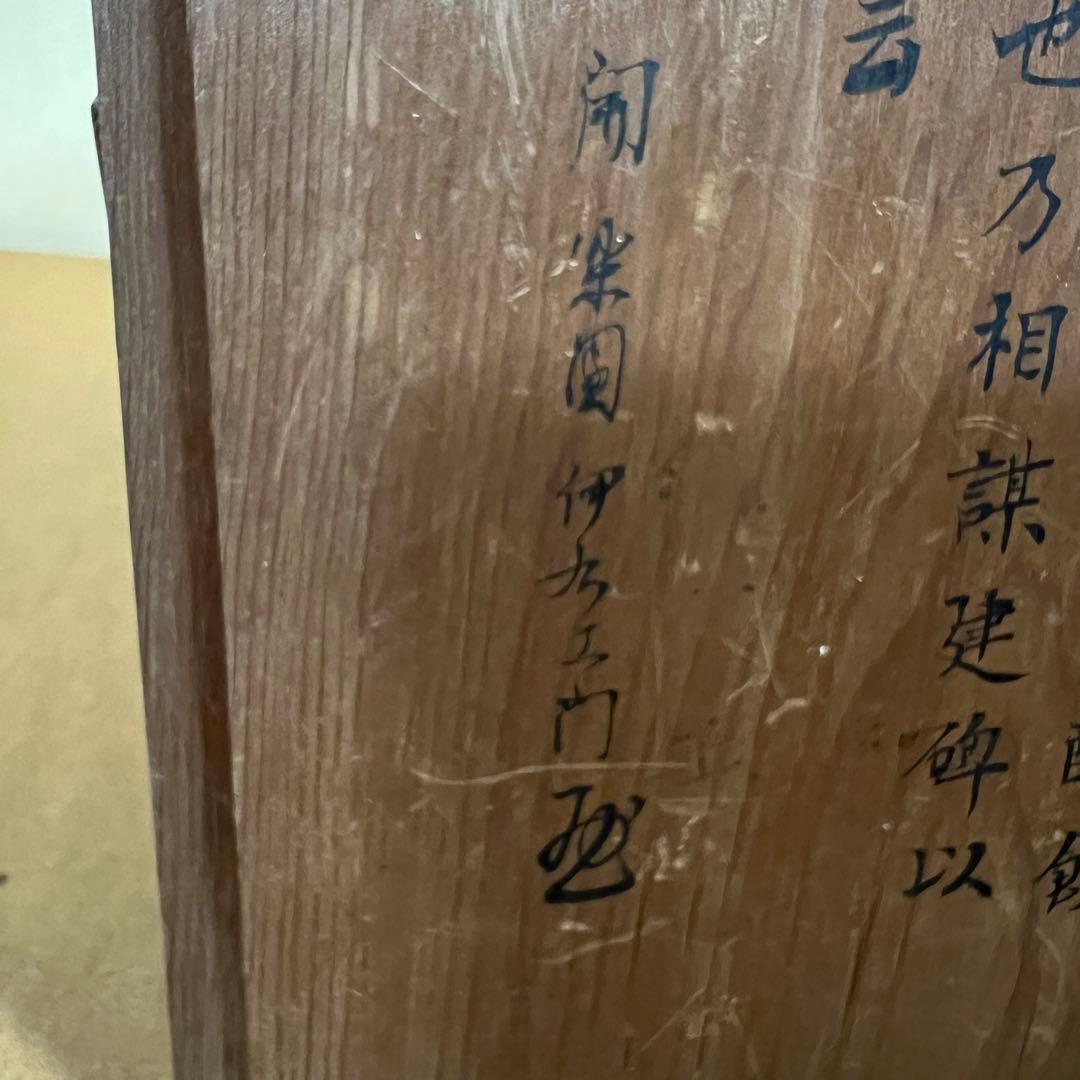 也乃相謀建碑以
云
開楽園伊右エ門